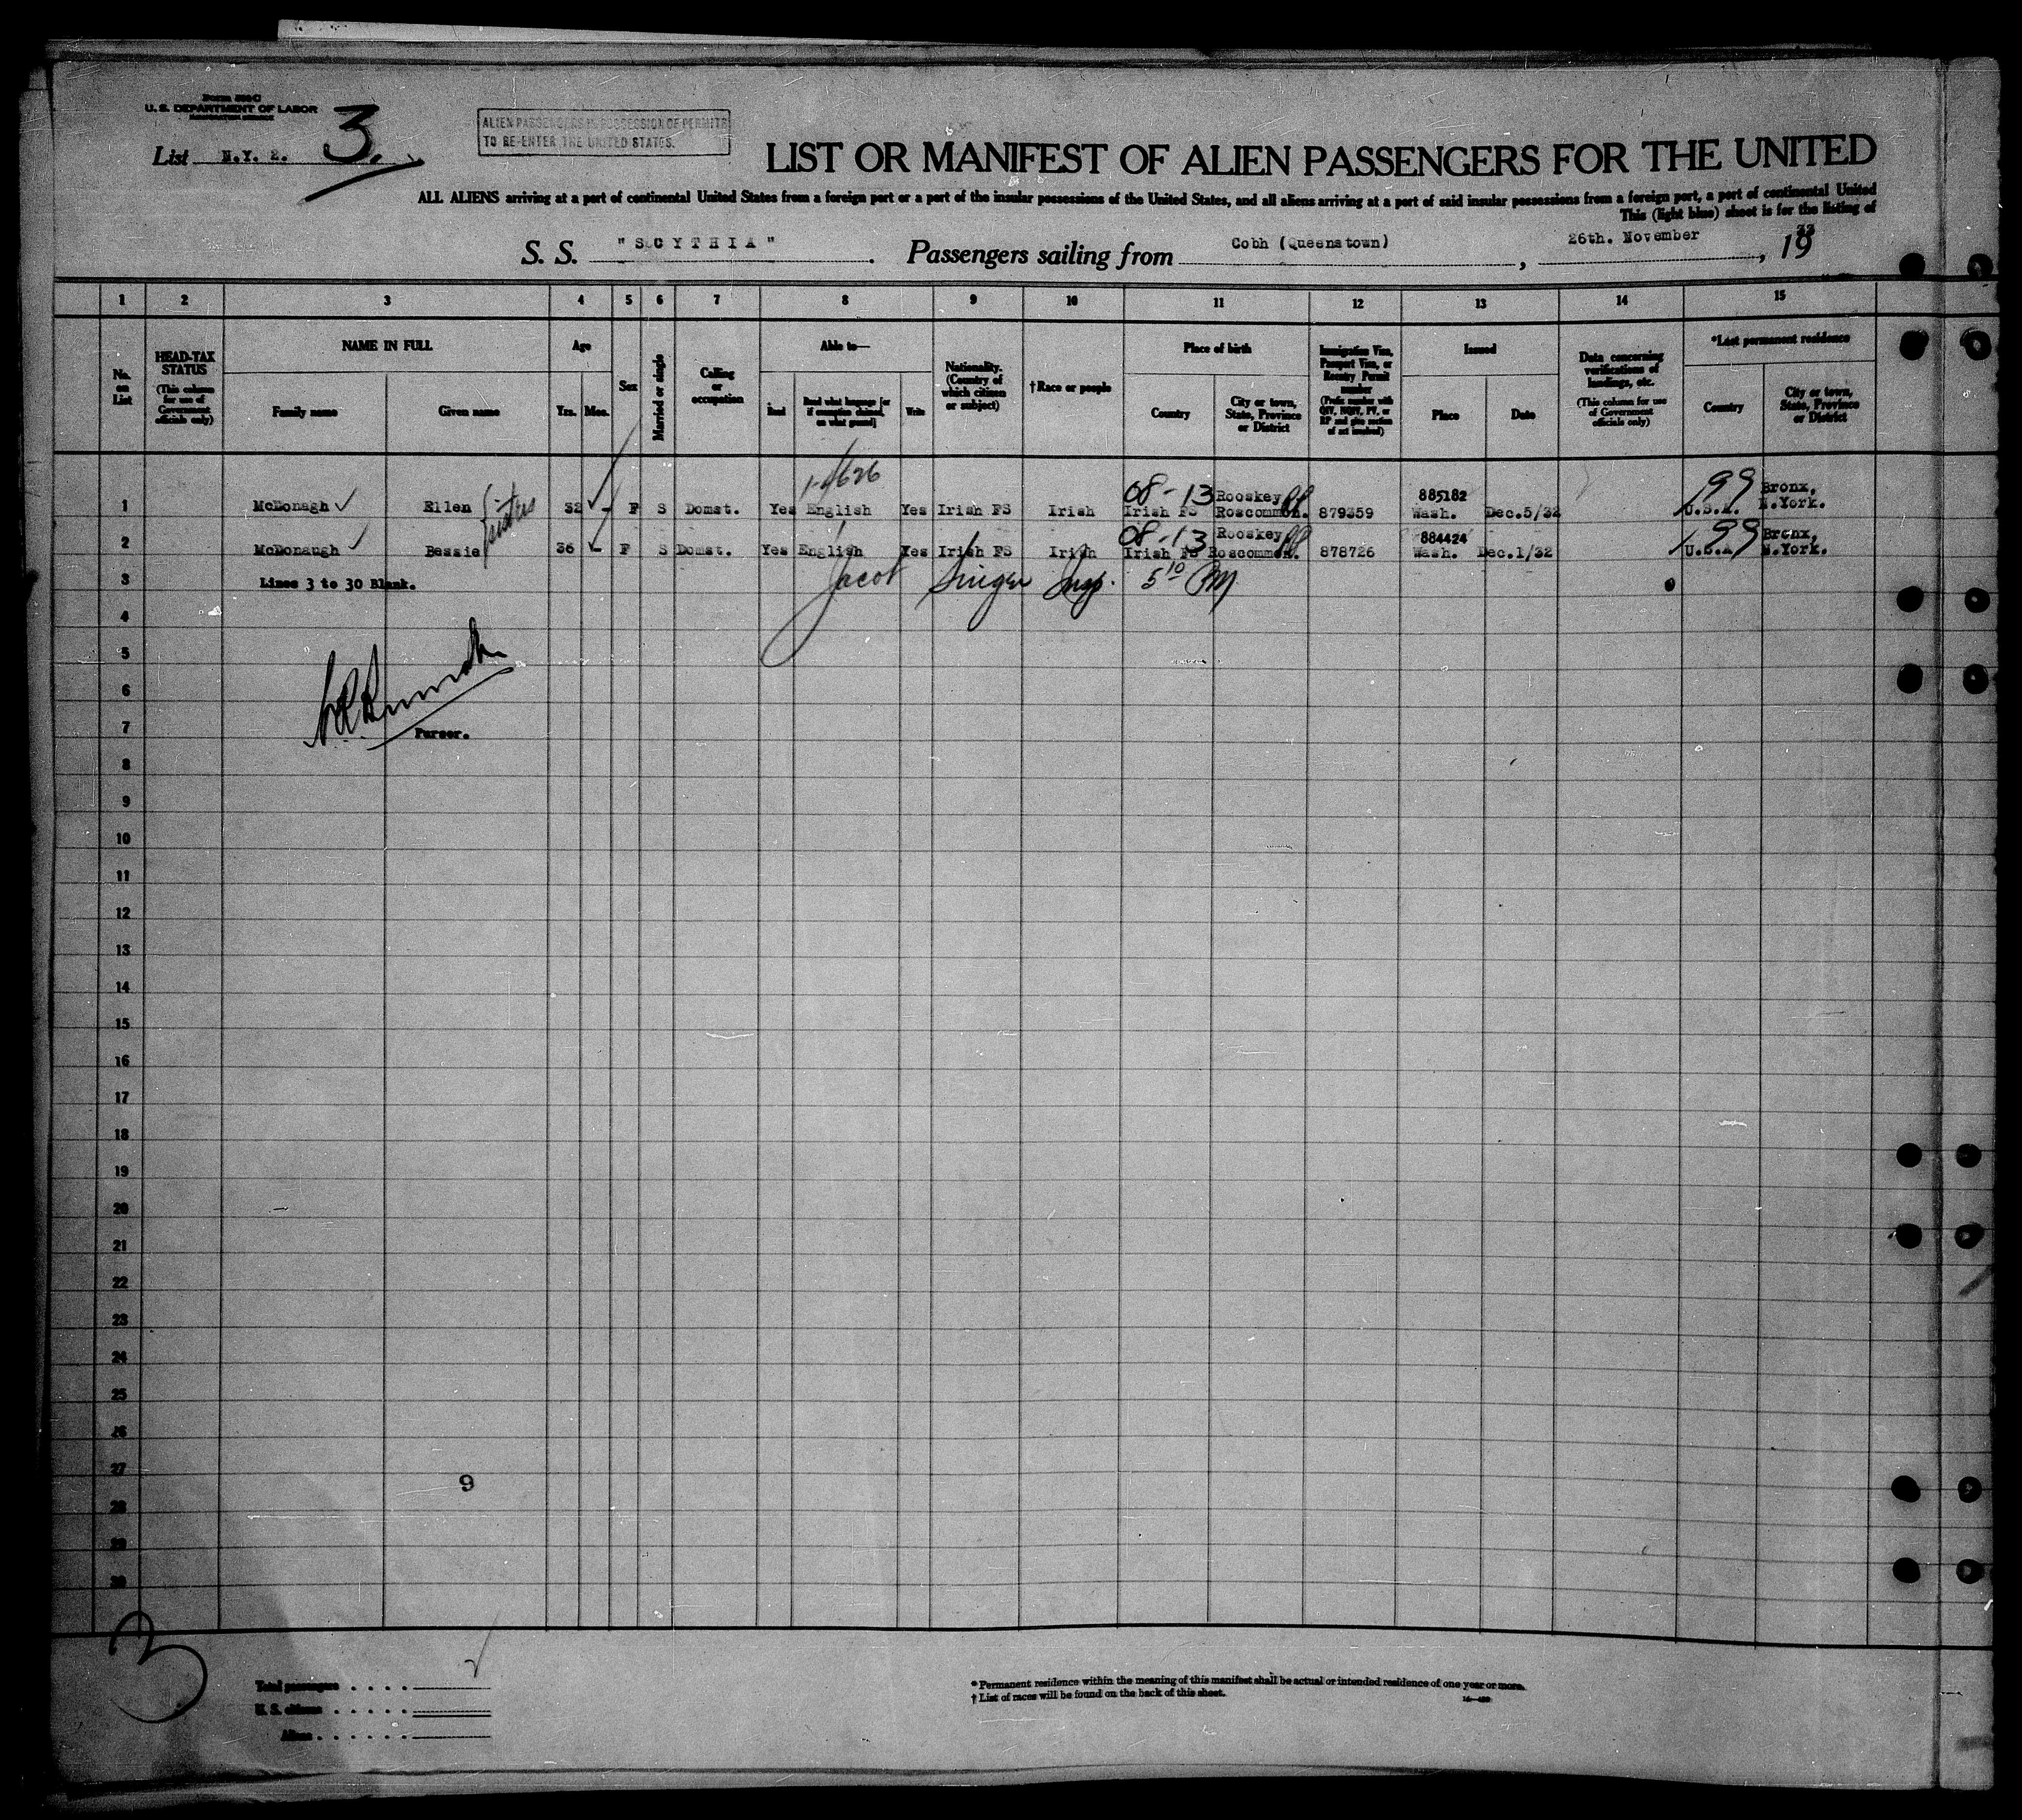 Form 500 C
U. S. DEPARTMENT OF LABOR
IMMIGRATION SERVICE
3.
List N.Y. 2.
ALIEN PASSENGERS IN POSSESSION OF PERMITS
TO RE-ENTER THE UNITED STATES.
LIST OR MANIFEST OF ALIEN PASSENGERS FOR THE UNITED
ALL ALIENS arriving at a port of continental United States from a foreign port or a port of the insular possessions of the United States, and all aliens arriving at a port of said insular possessions from a foreign port, a port of continental United
This (light blue) sheet is for the listing of
S. S. "SCYTHIA". Passengers sailing from Cobh (Queenstown), 26th. November, 1933
1 2 3 4 5 6 7 8 9 10 11 12 13 14 15
No. on List
HEAD-TAX STATUS (This column for use of Government officials only)
NAME IN FULL
Family name
Given name
Age
Yrs. Mos.
Sex
Married or single
Calling or occupation
Able to—
Read
Read what language [or if exemption claimed, on what ground]
Write
Nationality. (Country of which citizen or subject)
†Race or people
Place of birth
Country
City or town, State, Province or District
Immigration Visa, Passport Visa, or Reentry Permit number (Prefix number with QIV, NQIV, PV, or RP and give section of act involved)
Issued
Place
Date
Data concerning verifications of landings, etc. (This column for use of Government officials only)
*Last permanent residence
Country
City or town, State, Province or District
08-13 Rooskey 885182 99 Bronx,
1 McDonagh Ellen 32 - F S Domst. Yes English Yes Irish FS Irish Irish FS Roscommon. 879359 Wash. Dec.5/32 U.S.A. N.York.
sisters
08-13 Rooskey 884424 99 Bronx,
2 McDonaugh Bessie 36 - F S Domst. Yes English Yes Irish FS Irish Irish FS Roscommon. 878726 Wash. Dec.1/32 U.S.A. N.York.
3 Lines 3 to 30 Blank. Jacob Singer Insp. 5 10 PM
4
5
6
7 Purser.
8
9
10
11
12
13
14
15
16
17
18
19
20
21
22
23
24
25
26
27
9
28
29
30
3
Total passengers
U. S. citizens
Aliens
* Permanent residence within the meaning of this manifest shall be actual or intended residence of one year or more.
† List of races will be found on the back of this sheet.